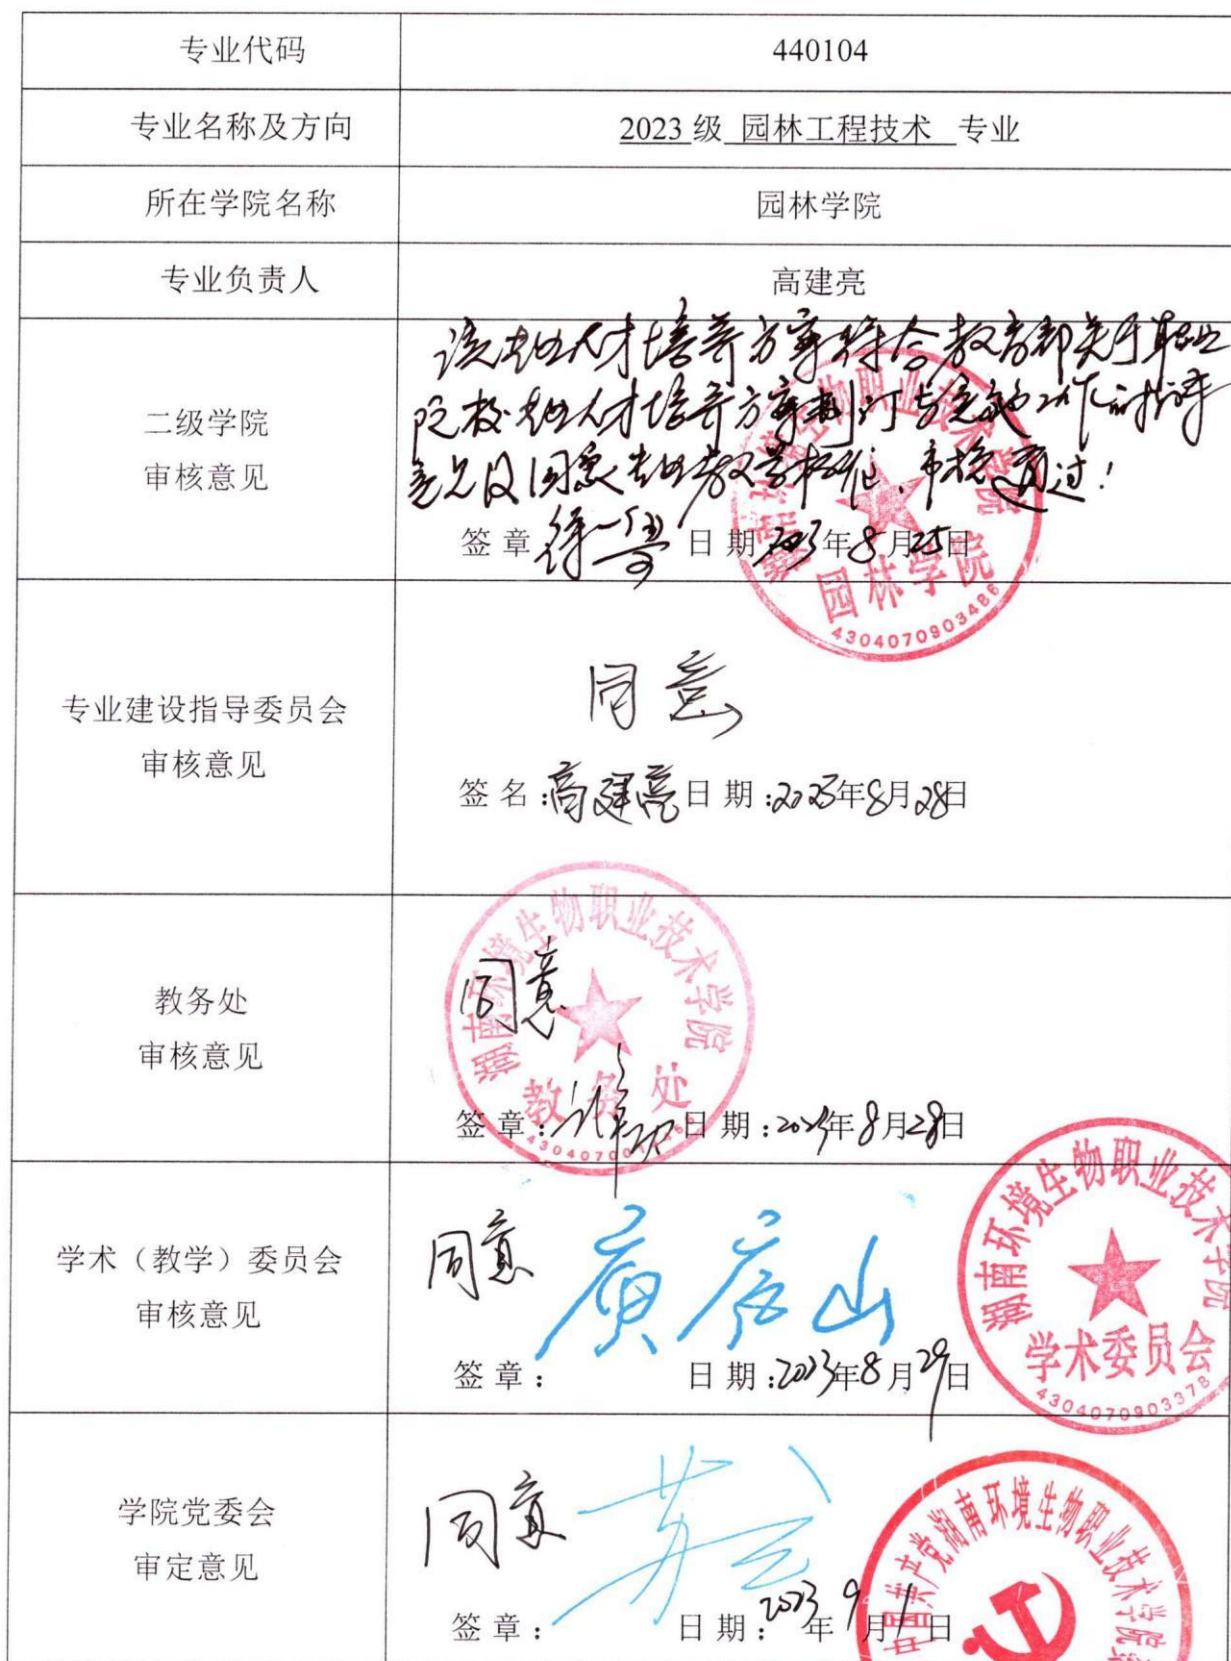 专业代码
440104
专业名称及方向
2023 级 园林工程技术 专业
所在学院名称
园林学院
专业负责人
高建亮
二级学院
审核意见
该专业人才培养方案符合教育部关于职业
院校专业人才培养方案制订与实施工作的指导
意见及国家专业教学标准,审核通过!
签章 徐一 日期 2023年8月25日
湖南环境生物职业技术学院
园林学院
4304070903486
专业建设指导委员会
审核意见
同意
签名:高建亮 日期:2023年8月28日
教务处
审核意见
同意
签章: 日期:2023年8月28日
湖南环境生物职业技术学院
教务处
学术(教学)委员会
审核意见
同意
签章: 日期:2023年8月29日
湖南环境生物职业技术学院
学术委员会
4304070903378
学院党委会
审定意见
同意
签章: 日期:2023年9月1日
中国共产党湖南环境生物职业技术学院